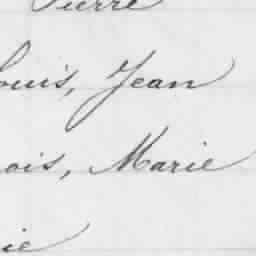 Pierre
ouis, Jean
ois, Marie
ie